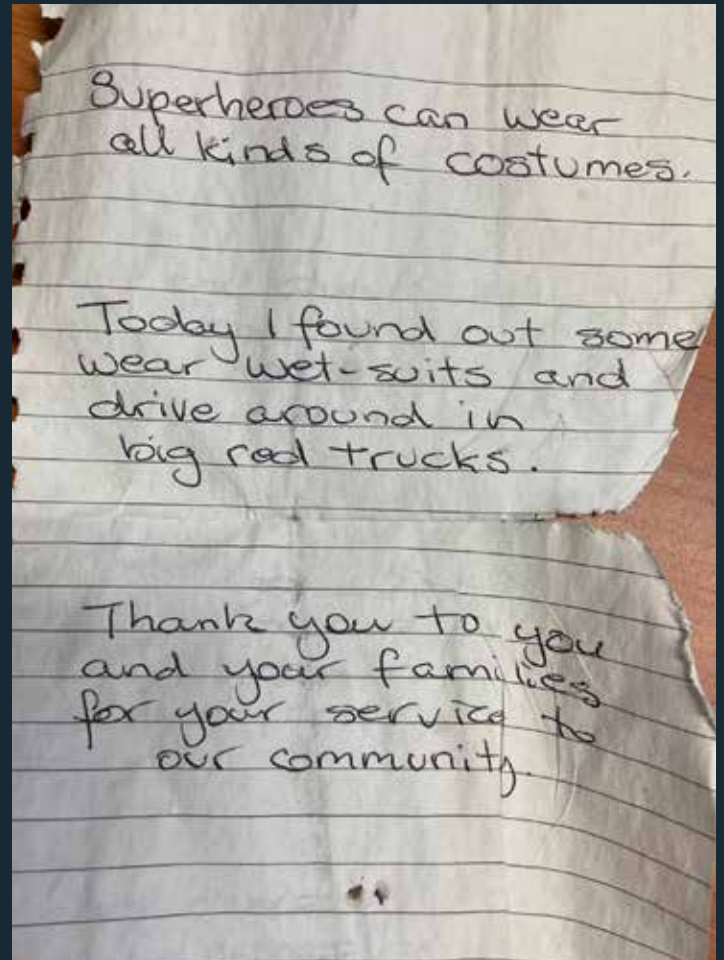 Superheroes can wear
all kinds of costumes.
Today I found out some
wear wet-suits and
drive around in
big red trucks.
Thank you to you
and your families
for your service to
our community.